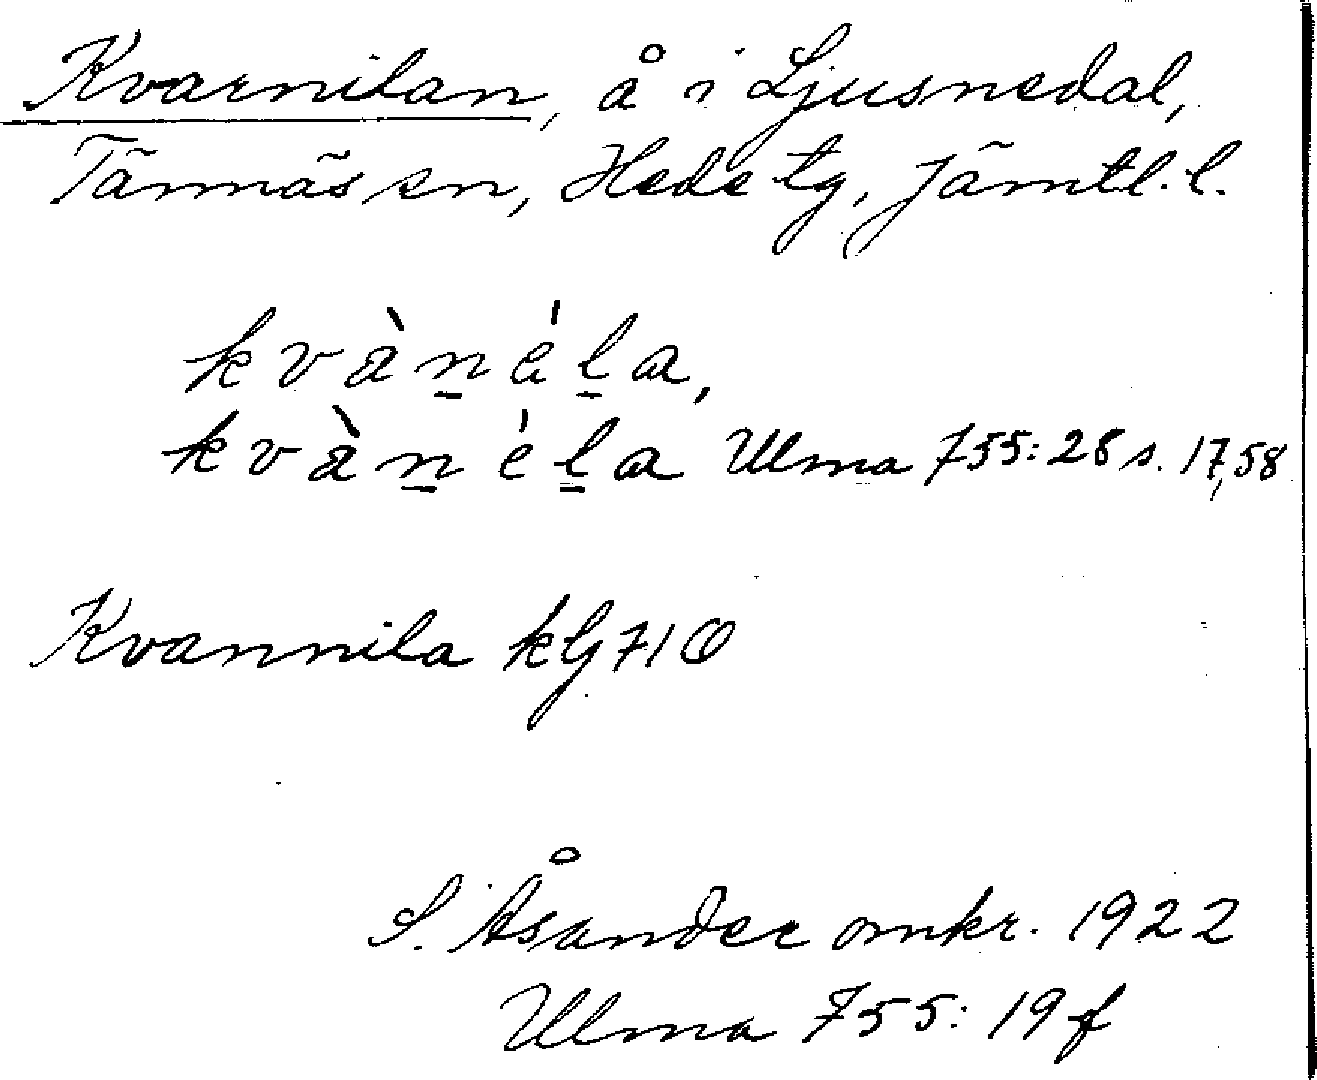 Kvarnilan, å i Ljusnedal,
Tännäs sn, Hede tg, Jämtl. l.
kvànéla,
kvànéla Ulma 755:28 s. 17,58
Kvannila kG 71 O
S. Åsander omkr. 1922
Ulma 755:19 f